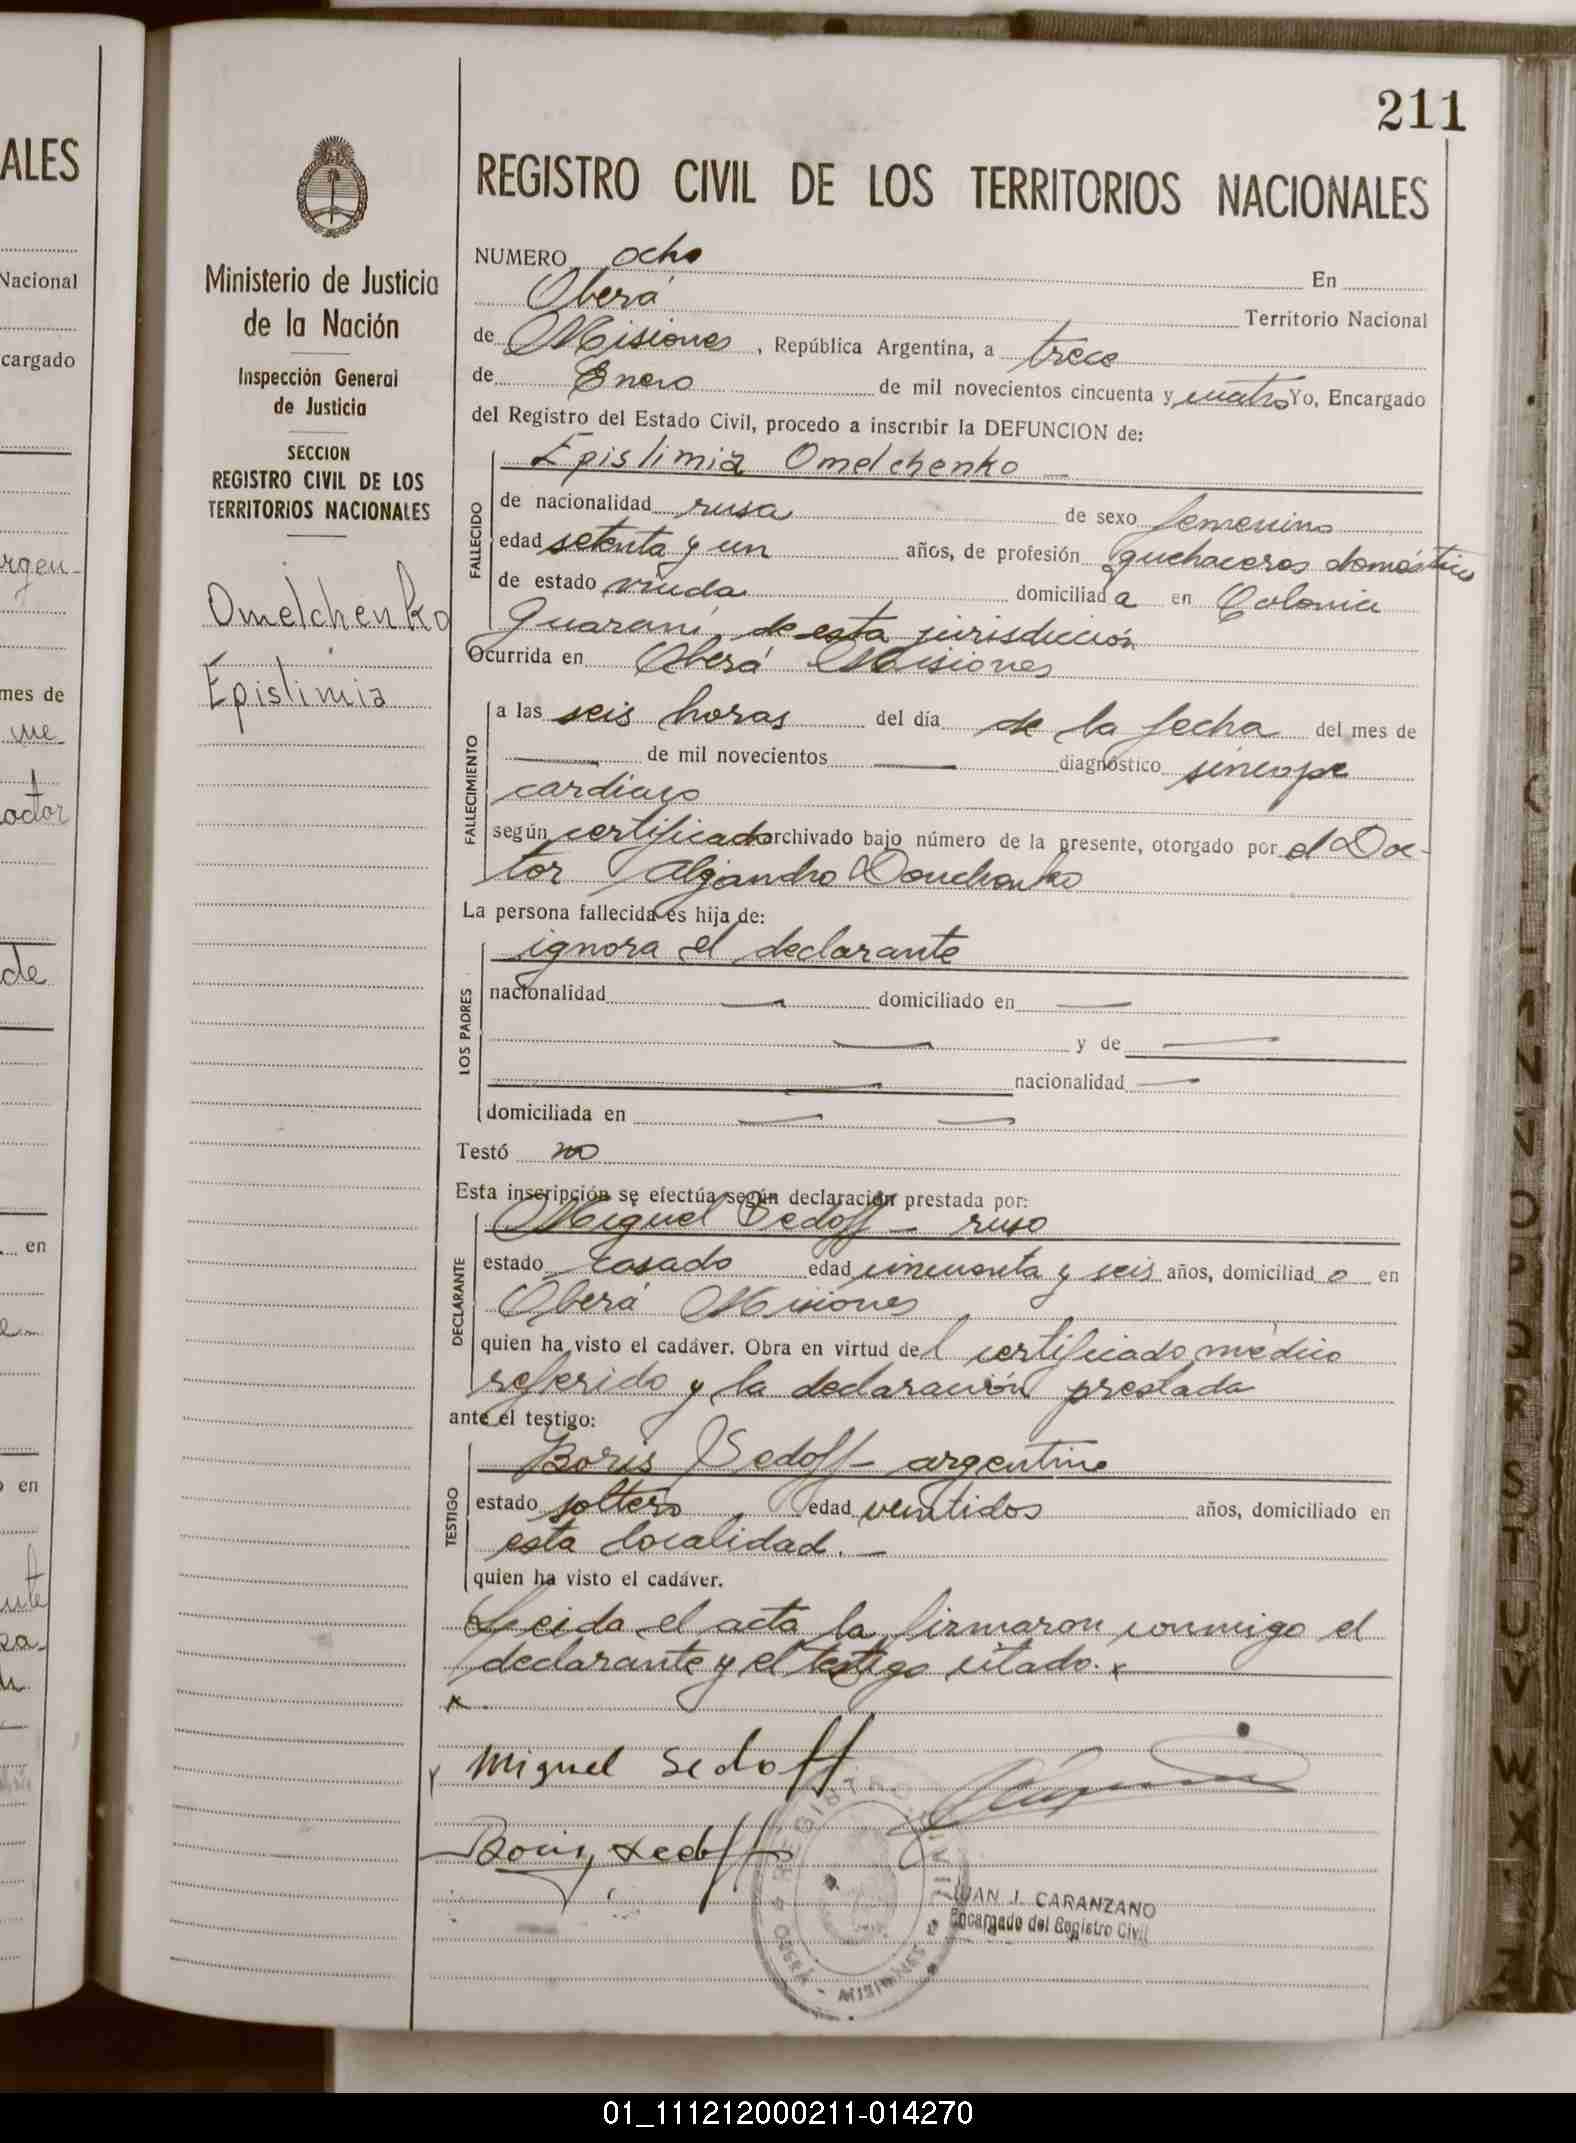 211
REGISTRO CIVIL DE LOS TERRITORIOS NACIONALES
Ministerio de Justicia
de la Nación
Inspección General
de Justicia
SECCION
REGISTRO CIVIL DE LOS
TERRITORIOS NACIONALES
Omelchenko
Epislimia
NUMERO ocho En
Oberá Territorio Nacional
de Misiones, República Argentina, a trece
de Enero de mil novecientos cincuenta y cuatro Yo, Encargado
del Registro del Estado Civil, procedo a inscribir la DEFUNCION de:
FALLECIDO
Epislimia Omelchenko
de nacionalidad rusa de sexo femenino
edad setenta y un años, de profesión quehaceres domésticos
de estado viuda domiciliada en Colonia
Guaraní, de esta jurisdicción
Ocurrida en Oberá Misiones
FALLECIMIENTO
a las seis horas del día de la fecha del mes de
de mil novecientos diagnóstico síncope
cardiaco
según certificado archivado bajo número de la presente, otorgado por el Doc-
tor Alejandro
La persona fallecida es hija de:
LOS PADRES
ignora el declarante
nacionalidad domiciliado en
y de
nacionalidad
domiciliada en
Testó no
Esta inscripción se efectúa según declaración prestada por:
DECLARANTE
Miguel Sedoff - ruso
estado casado edad cincuenta y seis años, domiciliado en
Oberá Misiones
quien ha visto el cadáver. Obra en virtud del certificado médico
referido y la declaración prestada
ante el testigo:
TESTIGO
Boris Sedoff - argentino
estado soltero edad veintidos años, domiciliado en
esta localidad.
quien ha visto el cadáver.
Leida el acta la firmaron conmigo el
declarante y el testigo citado.
Miguel Sedoff
Boris Sedoff
REGISTRO CIVIL
OBERÁ - MISIONES
JUAN J. CARANZANO
Encargado del Registro Civil
ALES
Nacional
cargado
rgen-
mes de
de
en
en
01_111212000211-014270